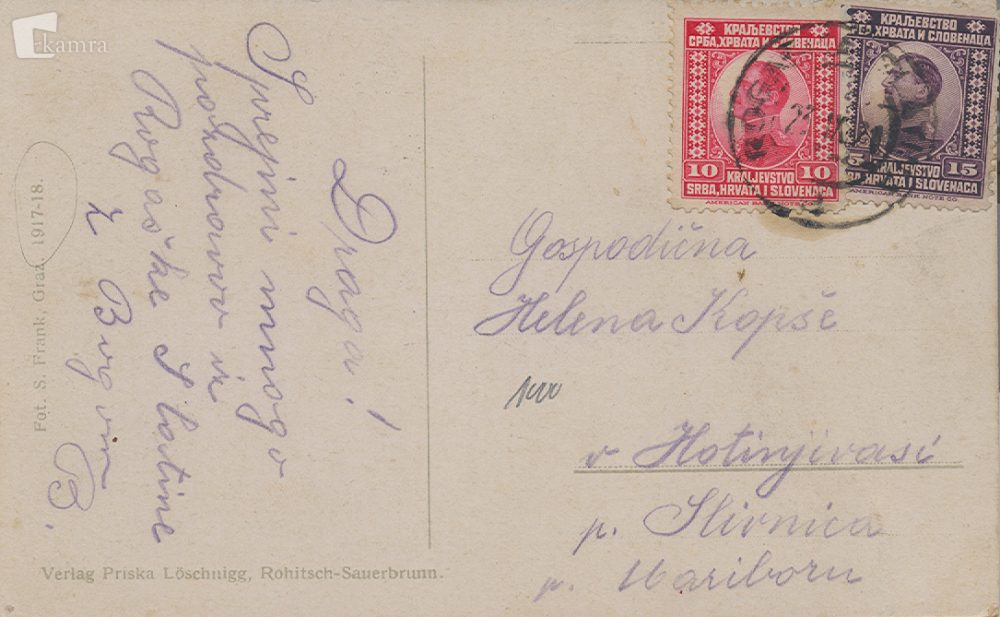 kamra
Draga!
Sprejmi mnogo
pozdravov iz
Rogaške Slatine
z Bogom
B.
Fot. S. Frank, Graz, 1917-18.
Verlag Priska Löschnigg, Rohitsch-Sauerbrunn.
КРАЉЕВСТВО
СРБА, ХРВАТА И СЛОВЕНАЦА
10 10
KRALJEVSTVO
SRBA, HRVATA I SLOVENACA
AMERICAN BANK NOTE CO.
КРАЉЕВСТВО
СРБА, ХРВАТА И СЛОВЕНАЦА
15 15
KRALJEVSTVO
SRBA, HRVATA I SLOVENACA
AMERICAN BANK NOTE CO.
Gospodična
Helena Kopše
v Hotinjivasi
p. Slivnica
p. Mariboru